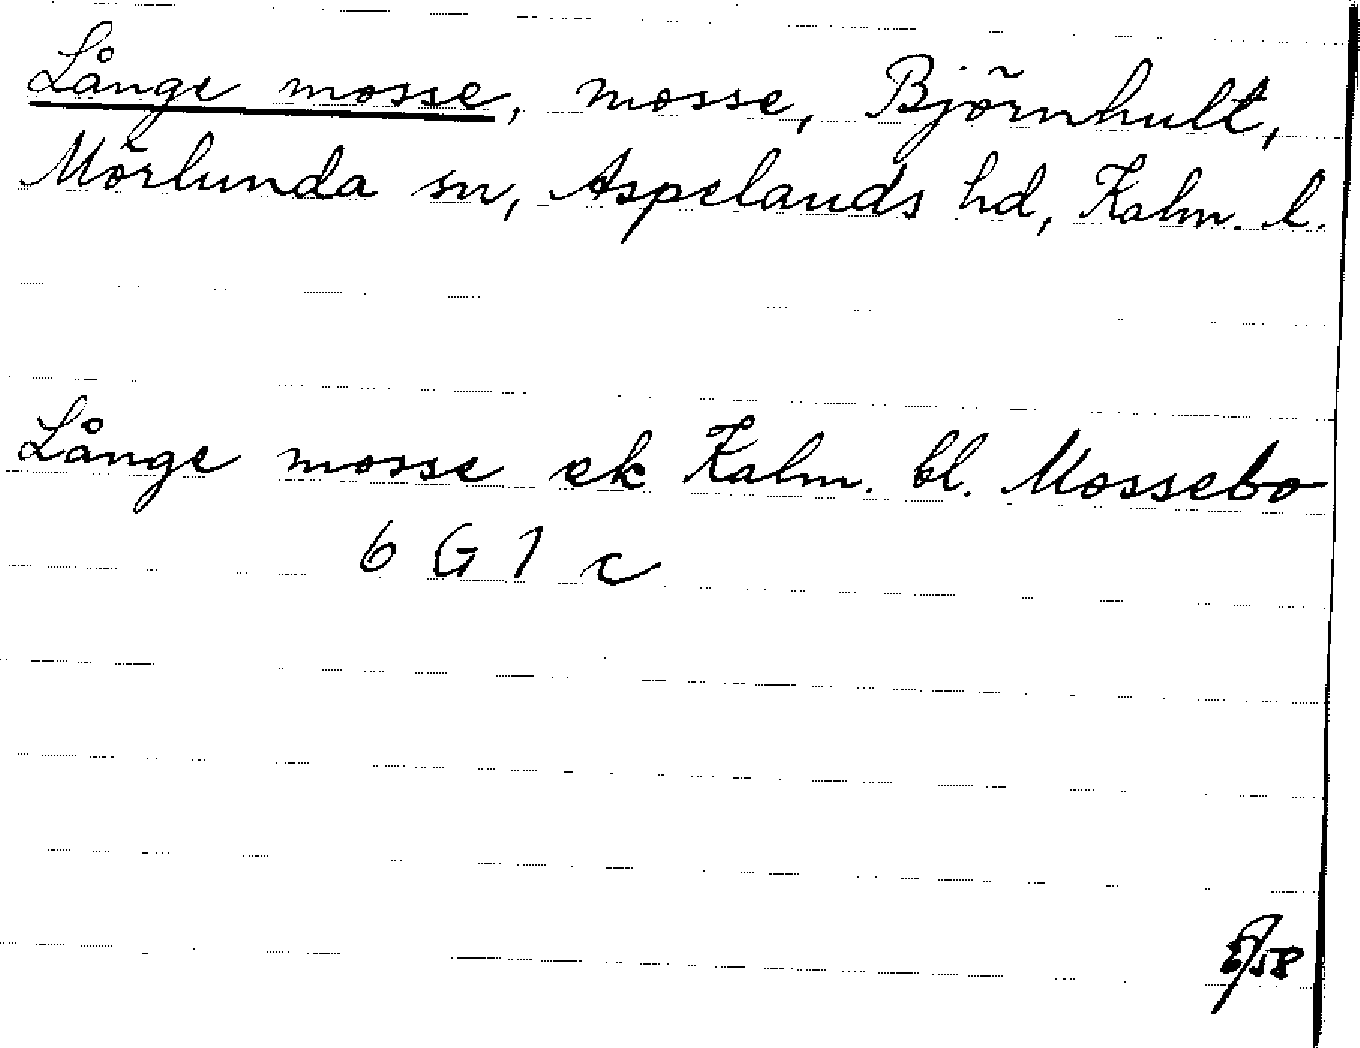 Långe mosse, mosse, Björnhult,
Mörlunda sn, Aspelands hd, Kalm. l.
Långe mosse ek Kalm. bl. Mossebo
6 G 1 c